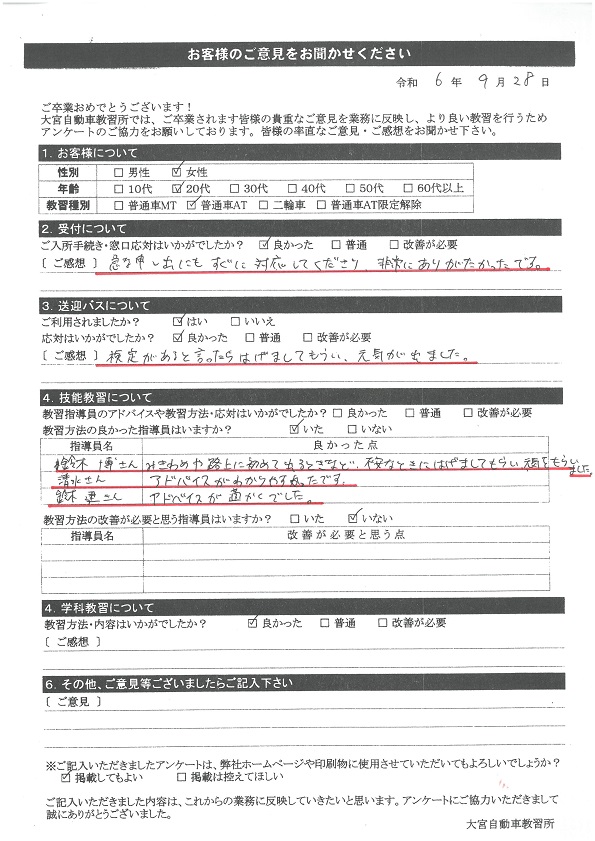 お客様のご意見をお聞かせください
令和 6 年 9 月 28 日
ご卒業おめでとうございます！
大宮自動車教習所では、ご卒業されます皆様の貴重なご意見を業務に反映し、より良い教習を行うため
アンケートのご協力をお願いしております。皆様の率直なご意見・ご感想をお聞かせ下さい。
1. お客様について
性別 □ 男性 ☑ 女性
年齢 □ 10代 ☑ 20代 □ 30代 □ 40代 □ 50代 □ 60代以上
教習種別 □ 普通車MT ☑ 普通車AT □ 二輪車 □ 普通車AT限定解除
2. 受付について
ご入所手続き・窓口応対はいかがでしたか？ ☑ 良かった □ 普通 □ 改善が必要
〔 ご感想 〕 急な申し出にもすぐに対応してくださり 非常にありがたかったです。
3. 送迎バスについて
ご利用されましたか？ ☑ はい □ いいえ
応対はいかがでしたか？ ☑ 良かった □ 普通 □ 改善が必要
〔 ご感想 〕 検定があると言ったらはげましてもらい、元気が出ました。
4. 技能教習について
教習指導員のアドバイスや教習方法・応対はいかがでしたか？ □ 良かった □ 普通 □ 改善が必要
教習方法の良かった指導員はいますか？ ☑ いた □ いない
指導員名 良かった点
鈴木 博さん みきわめや路上に初めて出るときなど、不安なときにはげましてもらい 頑をもらいました。
清水さん アドバイスがわかりやすかったです。
鈴木 さん アドバイスが 細かくでした。
教習方法の改善が必要と思う指導員はいますか？ □ いた ☑ いない
指導員名 改善が必要と思う点
4. 学科教習について
教習方法・内容はいかがでしたか？ ☑ 良かった □ 普通 □ 改善が必要
〔 ご感想 〕
6. その他、ご意見等ございましたらご記入下さい
〔 ご意見 〕
※ご記入いただきましたアンケートは、弊社ホームページや印刷物に使用させていただいてもよろしいでしょうか？
☑ 掲載してもよい □ 掲載は控えてほしい
ご記入いただきました内容は、これからの業務に反映していきたいと思います。アンケートにご協力いただきまして
誠にありがとうございました。
大宮自動車教習所